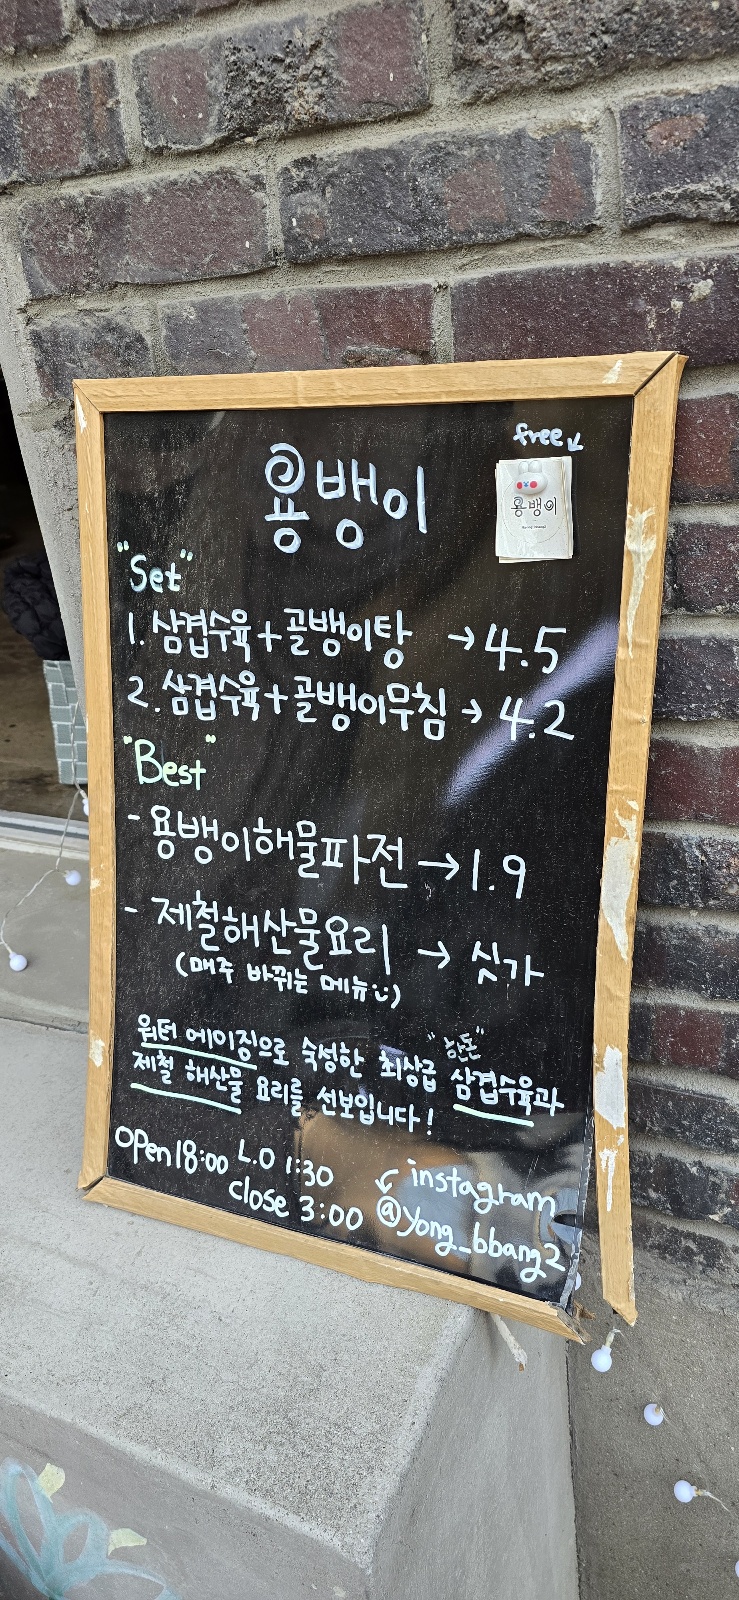 free↙
용뱅이
용뱅이
"Set"
1. 삼겹수육+골뱅이탕 → 4.5
2. 삼겹수육+골뱅이무침 → 4.2
"Best"
- 용뱅이해물파전 → 1.9
- 제철해산물요리 → 싯가
(매주 바뀌는 메뉴:))
워터 에이징으로 숙성한 최상급 "한돈" 삼겹수육과
제철 해산물 요리를 선보입니다!
open 18:00 L.O 1:30
close 3:00
instagram
@yong_bbang2